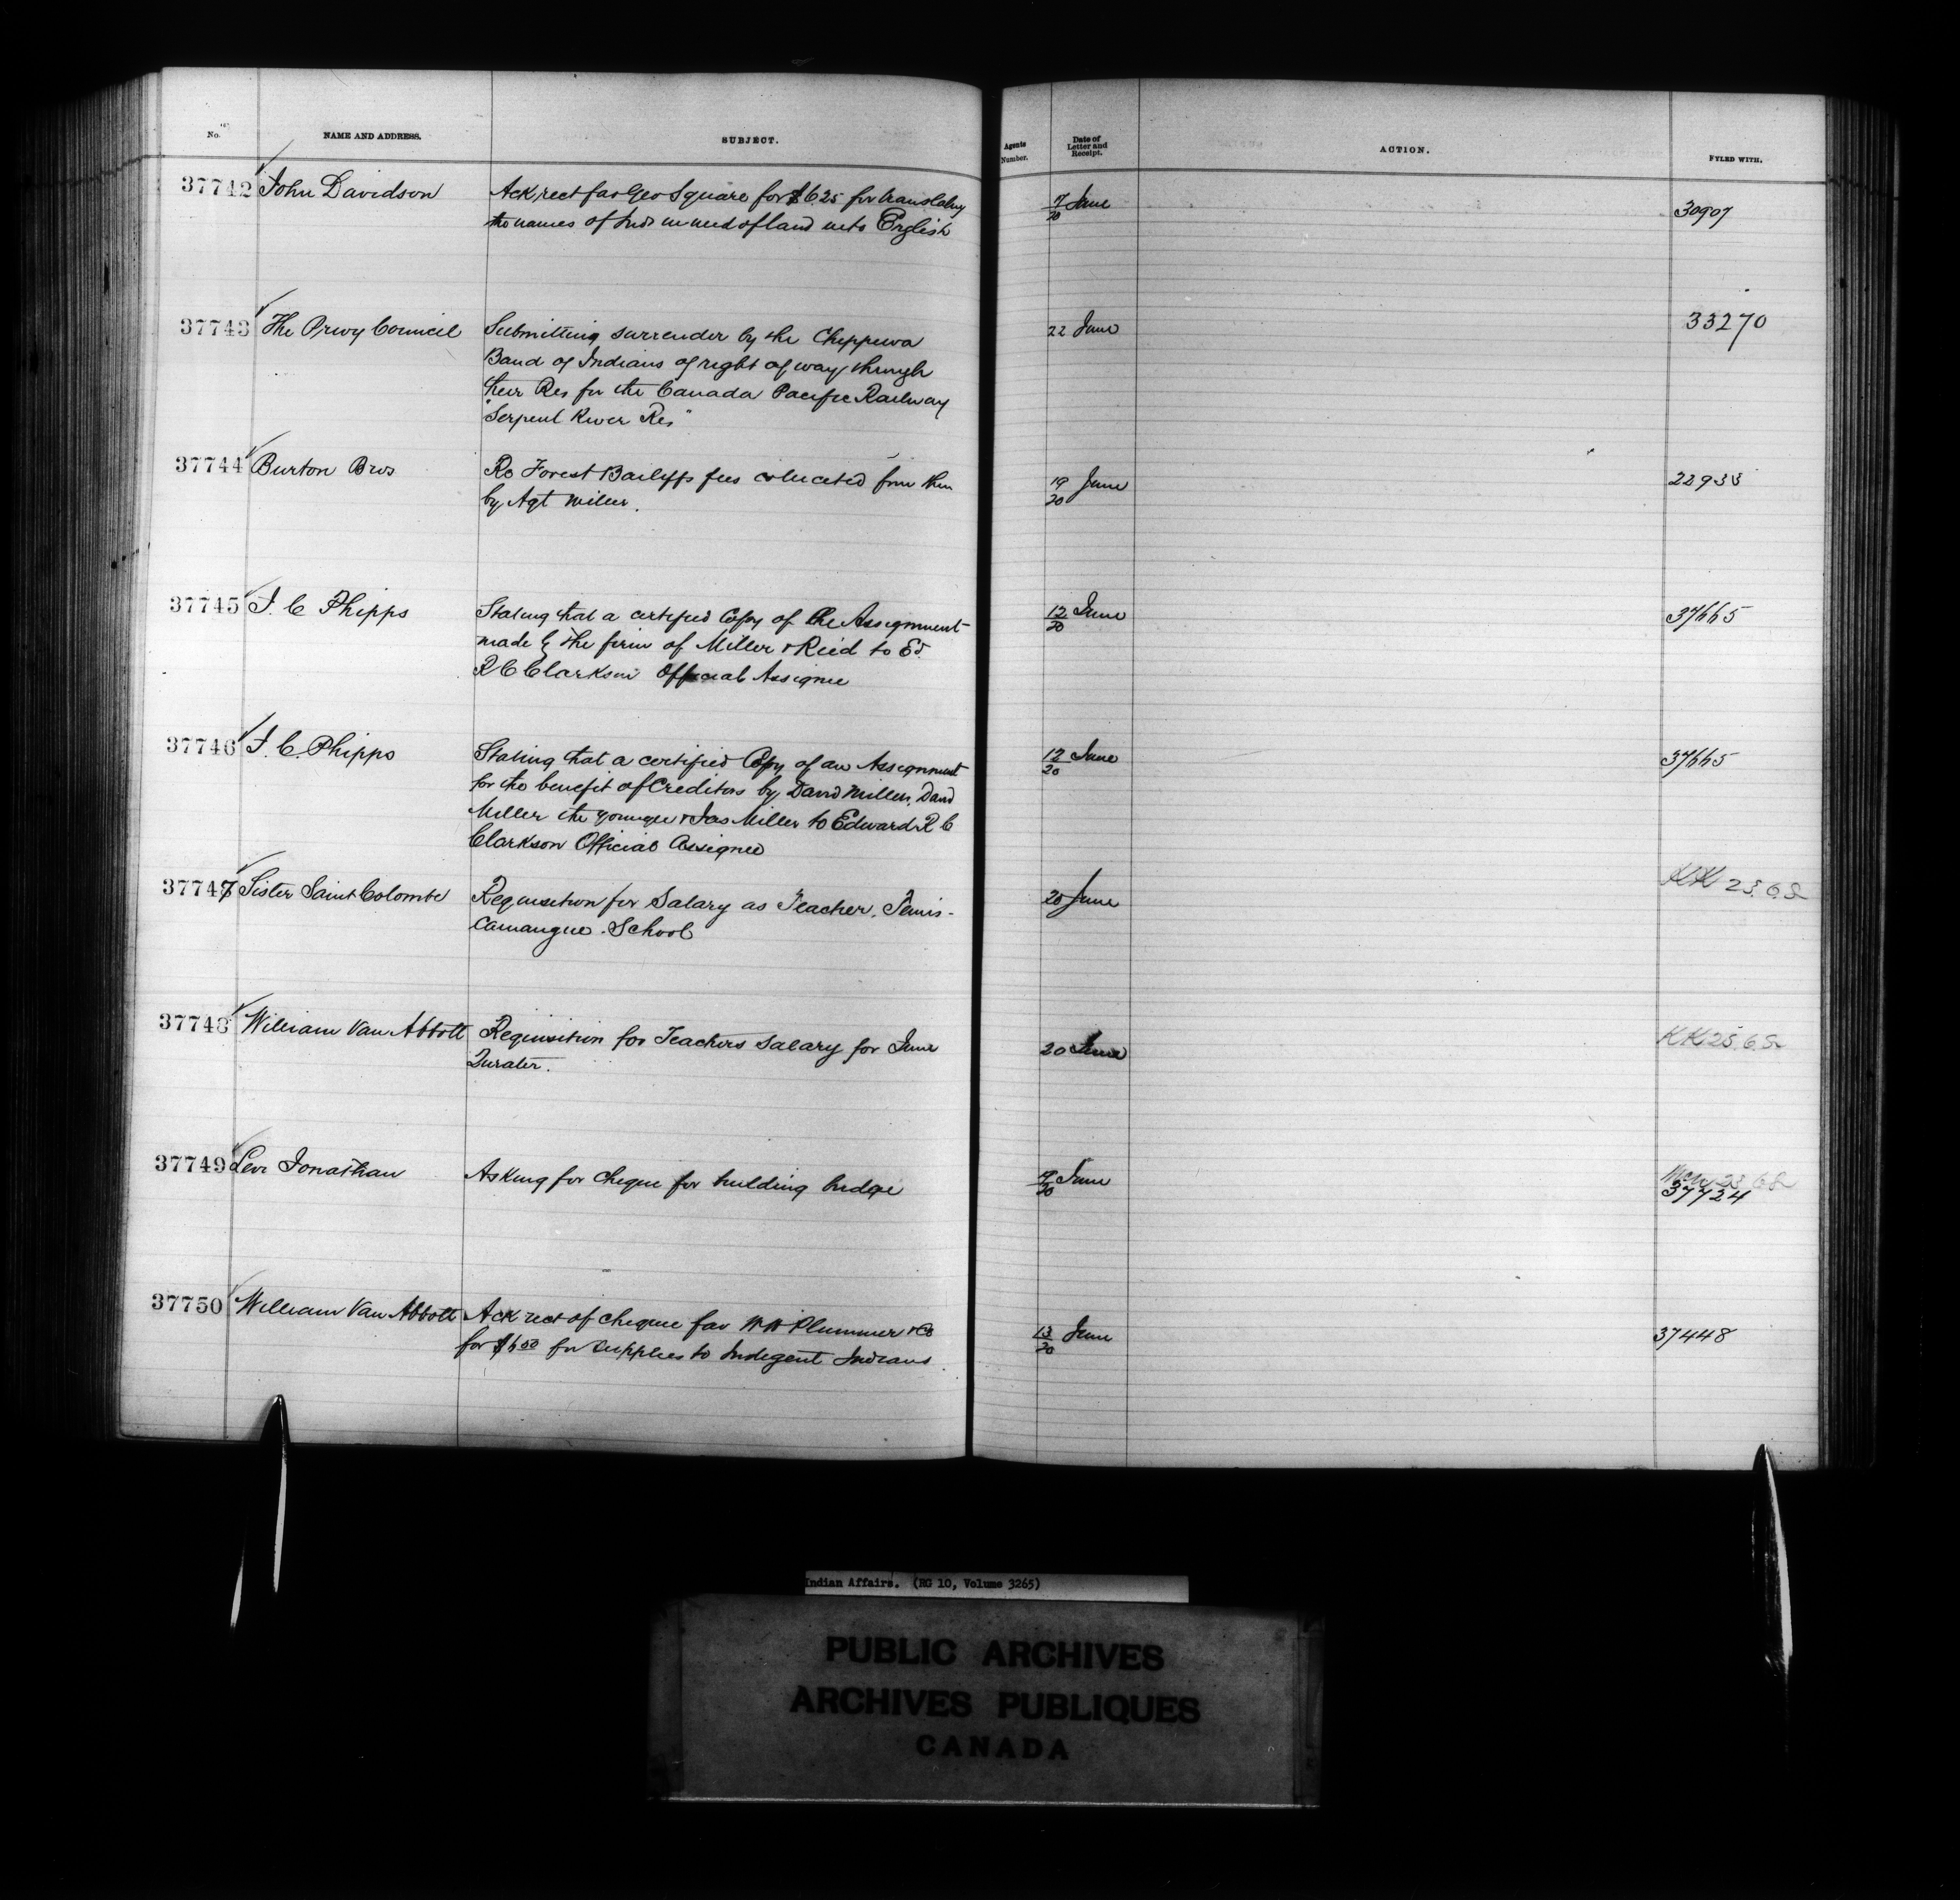 No. NAME AND ADDRESS. SUBJECT. Agents Number. Date of Letter and Receipt. ACTION. FYLED WITH.
37742 John Davidson Ack rect fav Geo Square for $6.25 for translating 7/20 June 30907
the names of Inds in need of land into English
37743 The Privy Council Submitting surrender by the Chippewa 22 June 33270
Band of Indians of right of way through
their Res for the Canada Pacific Railway
"Serpent River Res"
37744 Burton Bros Re Forest Bailiffs fees collected from them 19/20 June 22933
by Agt Miller.
37745 J. C Phipps Stating that a certified Copy of the Assignment 12/20 June 37665
made by the firm of Miller & Reid to Ed.
R C Clarkson Official Assignee
37746 J. C. Phipps Stating that a certified Copy of an Assignment 12/20 June 37665
for the benefit of Creditors by David Miller, David
Miller the younger & Jas Miller to Edward R C
Clarkson Official Assignee
37747 Sister Saint Colombe Requisition for Salary as Teacher, Temis- 20 June KK 23.6.82
camangue School
37748 William Van Abbott Requisition for Teachers Salary for June 20 June KK 25.6.82
Qurater.
37749 Levi Jonathan Asking for cheque for building bridge 19/20 June 23 6 82
37724
37750 William Van Abbott Ack rect of cheque fav W H Plummer & Co 13/20 June 37448
for $6.00 for supplies to Indigent Indians.
Indian Affairs. (RG 10, Volume 3265)
PUBLIC ARCHIVES
ARCHIVES PUBLIQUES
CANADA